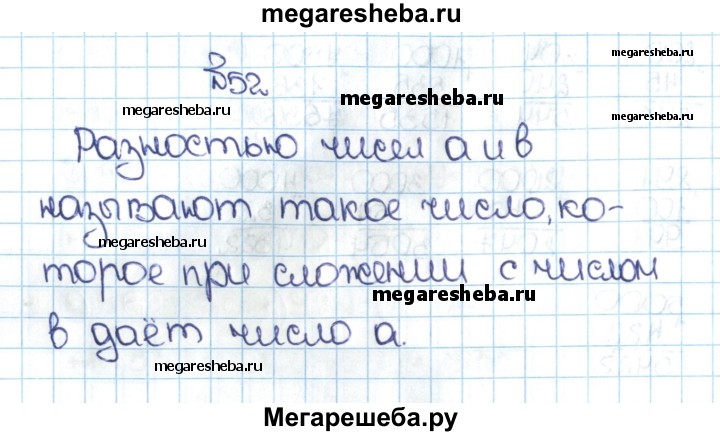 megaresheba.ru
megaresheba.ru
№52
megaresheba.ru
megaresheba.ru
Разностью чисел а и в
называют такое число, ко-
megaresheba.ru
торое при сложении с числом
megaresheba.ru
в даёт число а.
megaresheba.ru
megaresheba.ru
Мегарешеба.ру